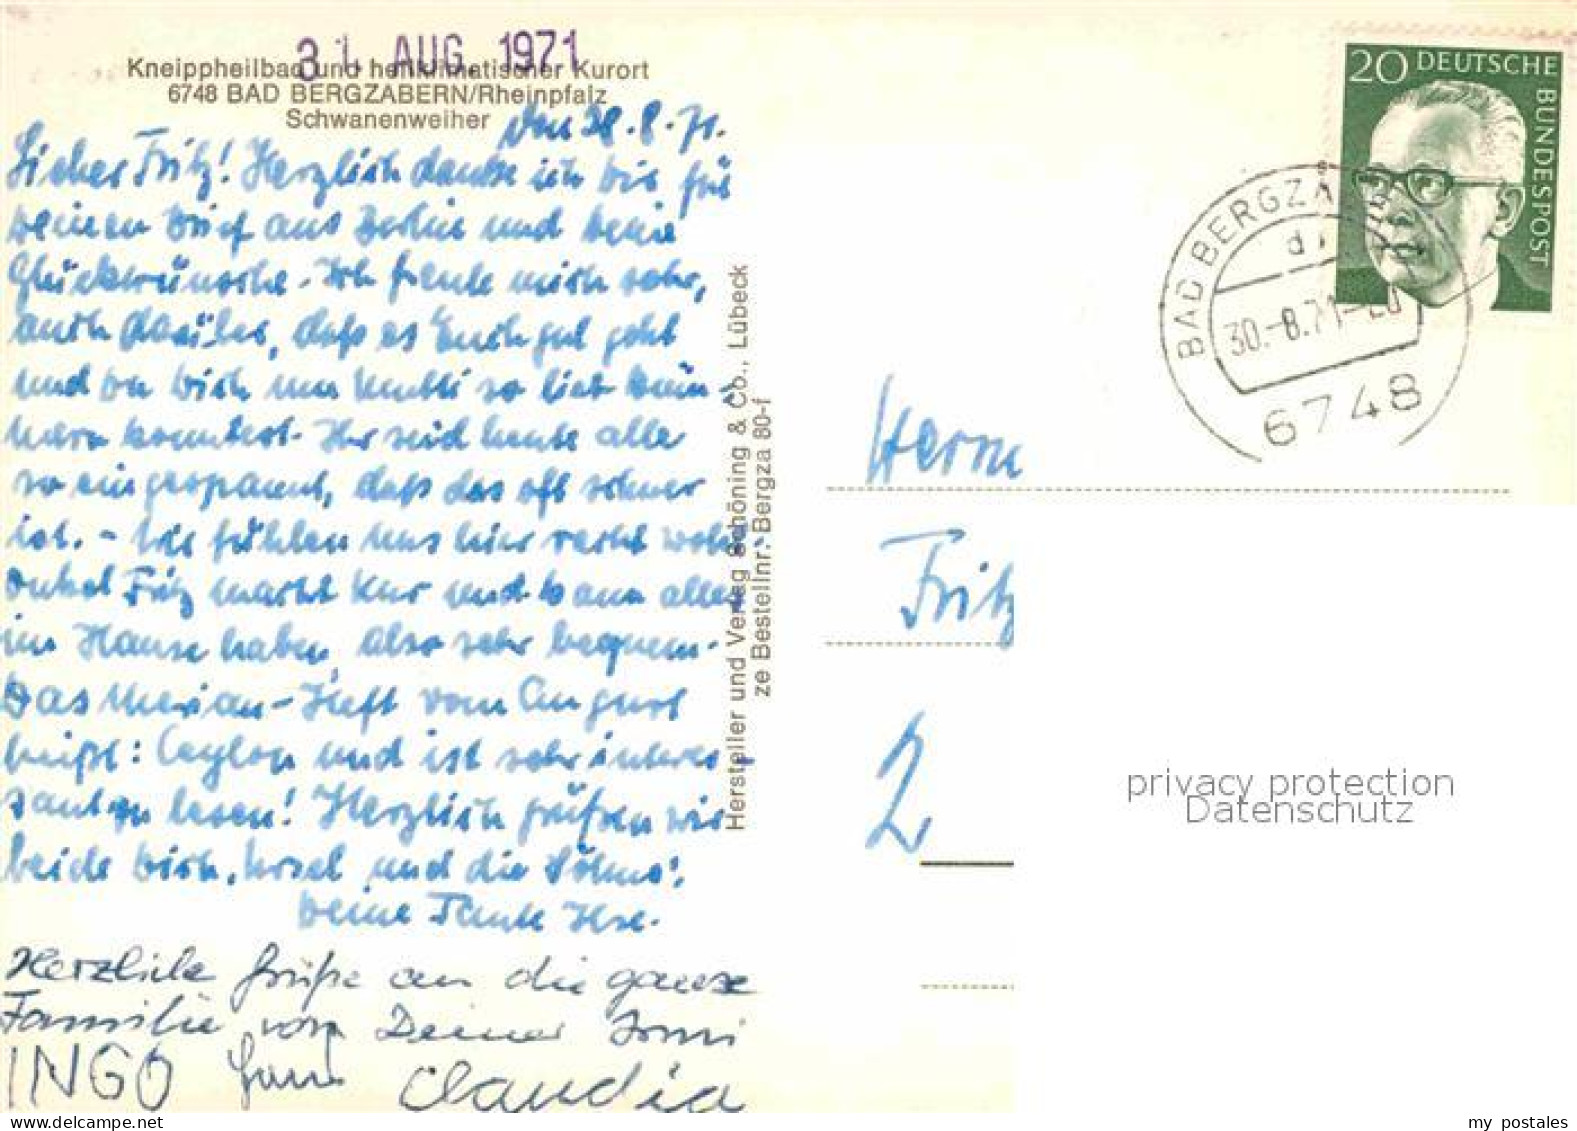 31. AUG. 1971
Kneippheilbad und heilklimatischer Kurort
6748 BAD BERGZABERN/Rheinpfalz
Schwanenweiher
den 28.8.71.
Lieber Fritz! Herzlich danke ich Dir für
Deinen Brief aus Berlin und Deine
Glückwünsche. Ich freute mich sehr,
auch darüber, daß es Euch gut geht
und Du Dich um Mutti so lieb küm-
mern konntest. Ihr seid heute alle
so eingespannt, daß das oft schwer
ist. - Wir fühlen uns hier recht wohl.
Onkel Fritz macht Kur und kann alles
im Hause haben, also sehr bequem.
Das Merian-Heft vom August
heißt: Ceylon und ist sehr interes-
sant zu lesen! Herzlich grüßen wir
beide Dich, Ursel und die Söhne,
Deine Tante Ilse.
Herzliche Grüße an die ganze
Familie von Deiner Irmi
INGO Hans Claudia
Hersteller und Verlag Schöning & Co., Lübeck
ze Bestellnr. Bergza 80-f
20 DEUTSCHE
BUNDESPOST
BAD BERGZA
d
30.-8.71-20
6748
Herrn
Fritz
2
privacy protection
Datenschutz
my postales